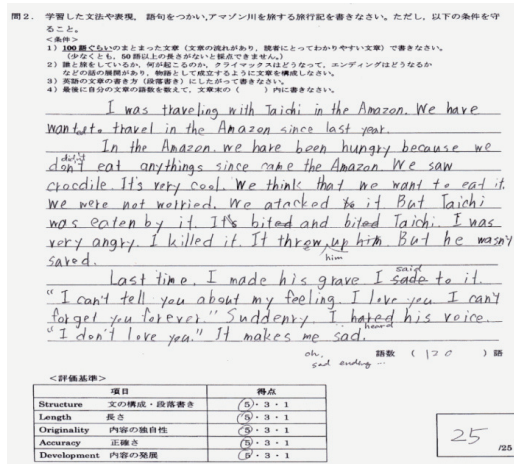 問2. 学習した文法や表現、語句をつかい,アマゾン川を旅する旅行記を書きなさい。ただし、以下の条件を守ること。
<条件>
1) 100語ぐらいのまとまった文章（文章の流れがあり、読者にとってわかりやすい文章）で書きなさい。
（少なくとも、50語以上の長さがないと採点できません。）
2) 誰と旅をしているか、何が起こるのか、クライマックスはどうなって、エンディングはどうなるか
などの話の展開があり、物語として成立するように文章を構成しなさい。
3) 英語の文章の書き方（段落書き）にしたがって書きなさい。
4) 最後に自分の文章の語数を数えて、文章末の（　　）内に書きなさい。
I was traveling with Taichi in the Amazon. We have
wanted to travel in the Amazon since last year.
In the Amazon. we have been hungry because we
didn't
don't eat anythings since came the Amazon. We saw
crocdile. It's very cool. We think that we want to eat it.
We were not worried. We atacked to it. But Taichi
was eaten by it. It's bited and bited Taichi. I was
very angry. I killed it. It threw up him. But he wasn't
him
saved.
Last time, I made his grave I sade to it.
said
"I can't tell you about my feeling. I love you I can't
forget you forever." Suddenry, I hared his voice.
heard
"I don't love you." It makes me sad.
oh,
sad ending...
語数 ( 120 ) 語
<評価基準>
項目 得点
Structure 文の構成・段落書き 5・3・1
Length 長さ 5・3・1
Originality 内容の独自性 5・3・1
Accuracy 正確さ 5・3・1
Development 内容の発展 5・3・1
25 /25